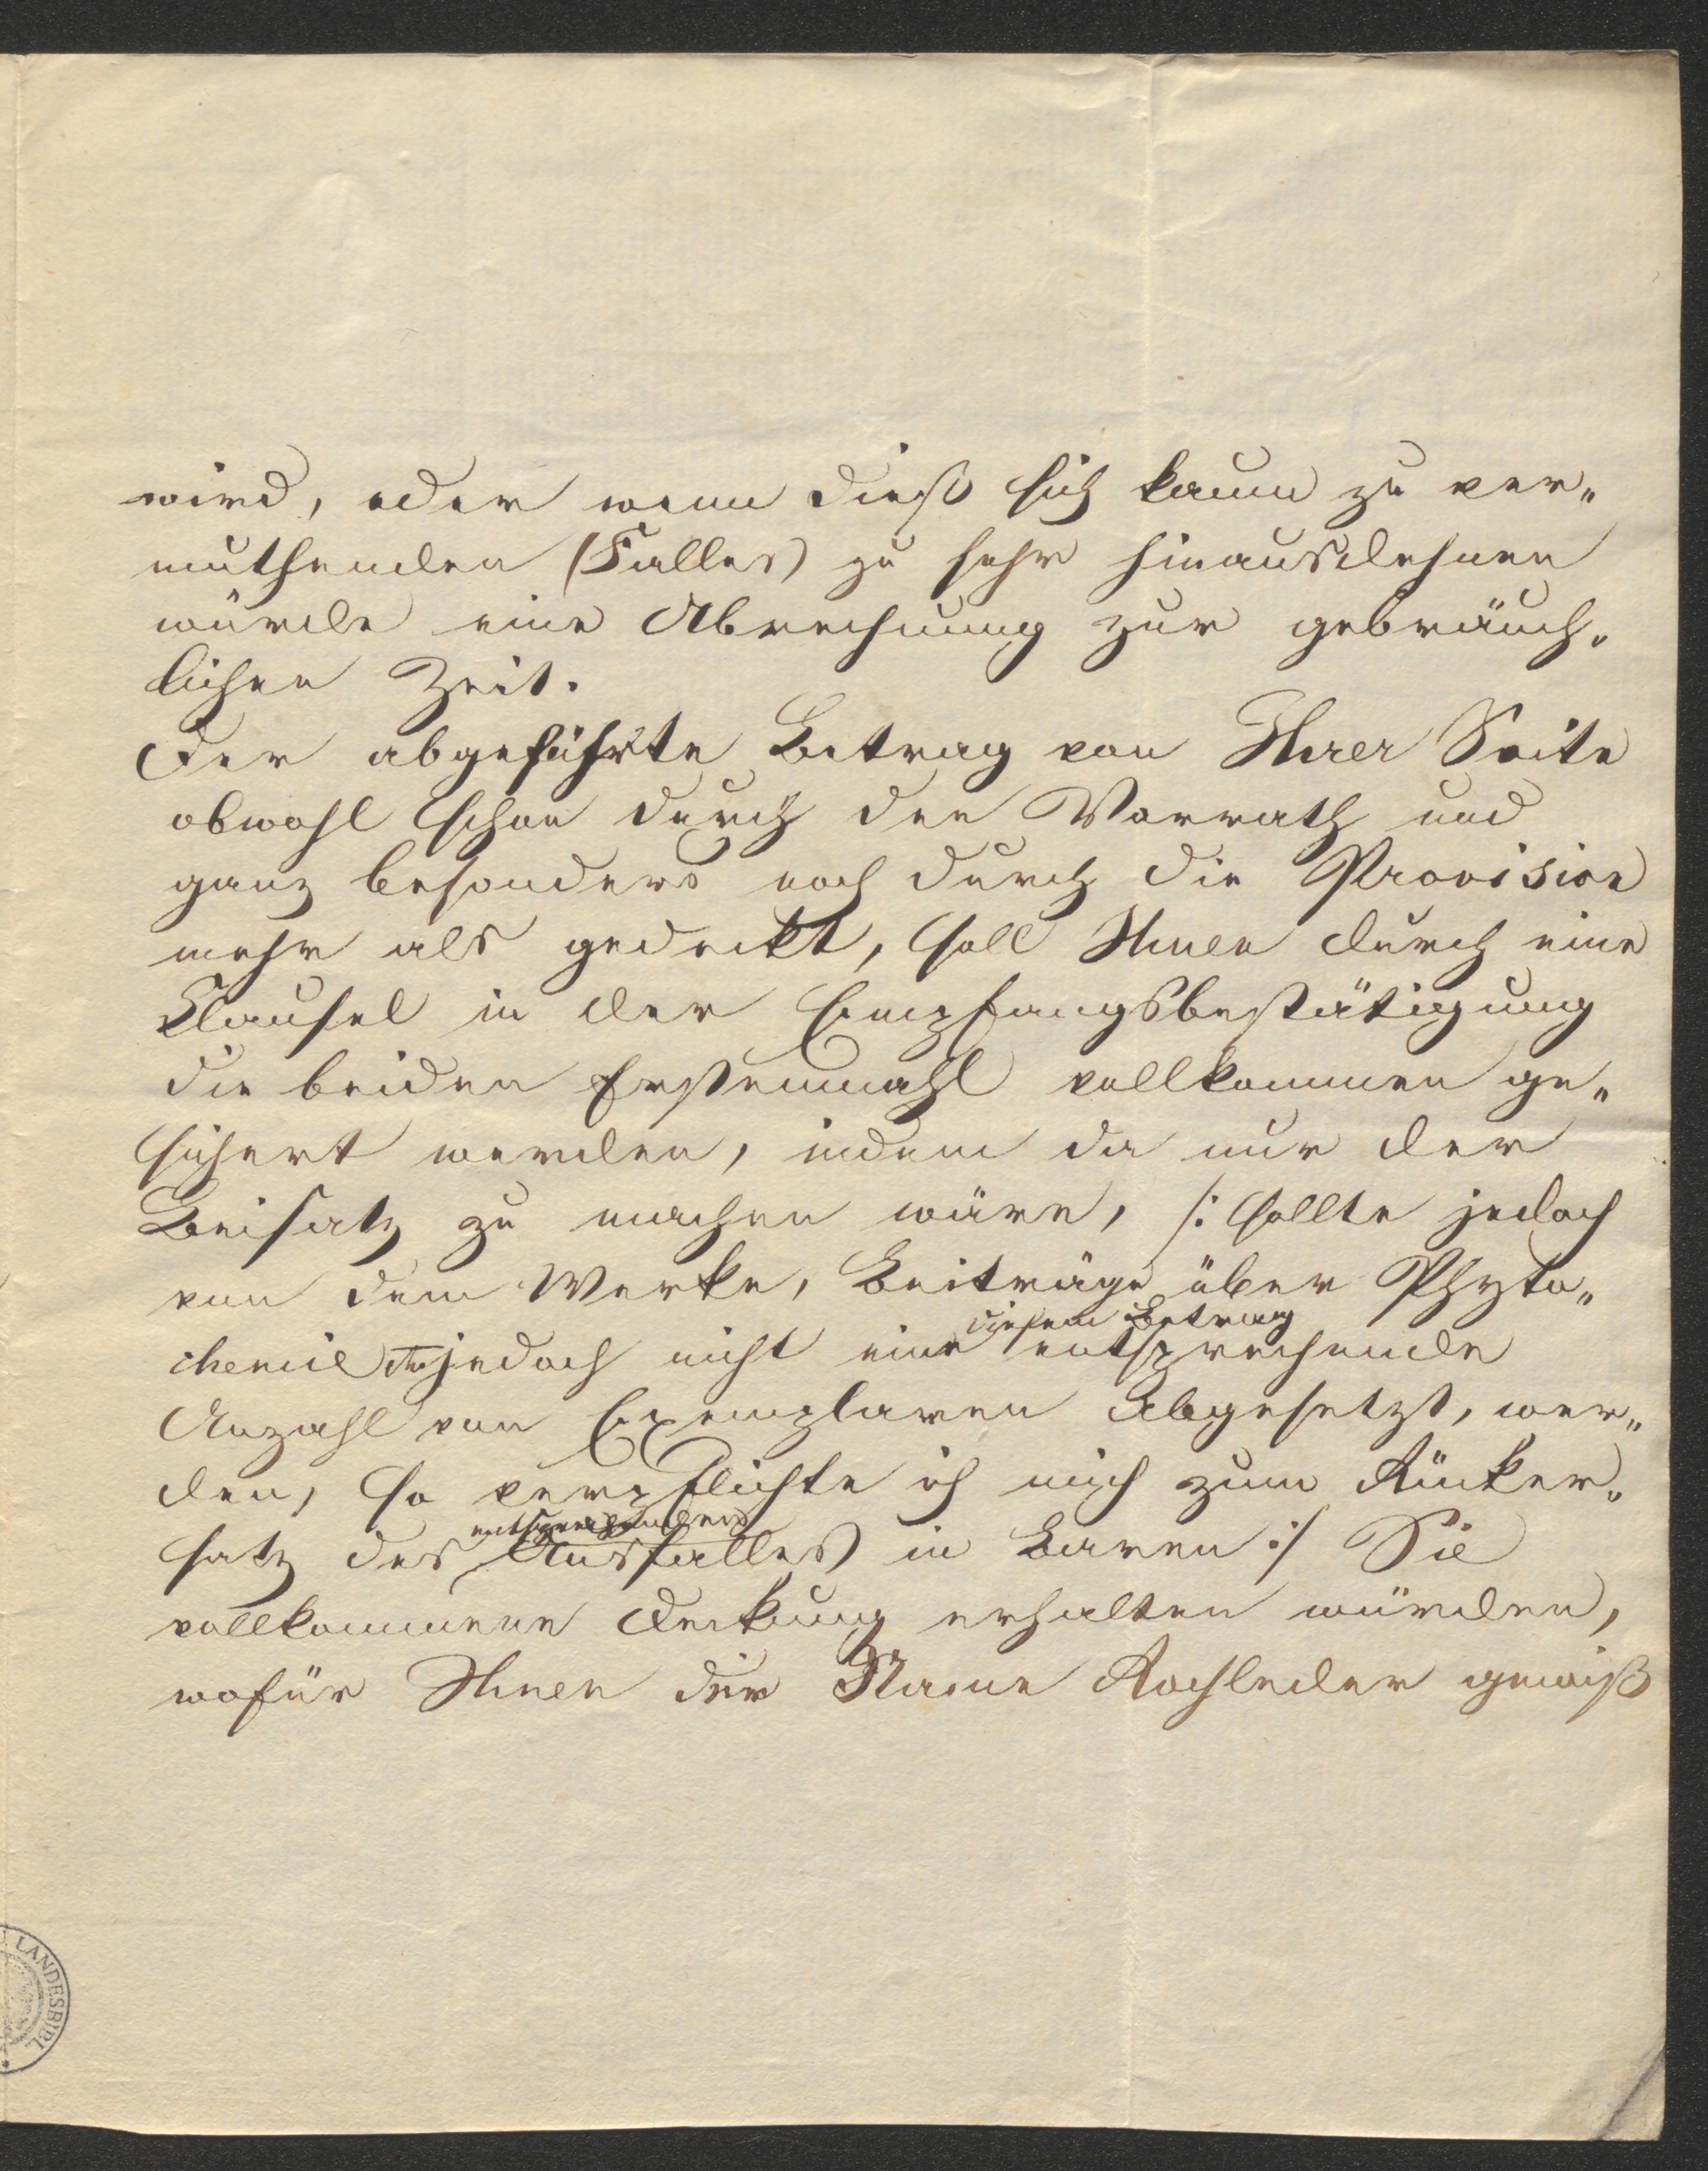 wird, oder wenn dieß sich kaum zu ver„
muthenden (Falles) zu sehr hinausdehnen
würde eine Abrechnung zur gebräuch„
lichen Zeit.
Der abgeführte Betrag von Ihrer Seite
obwohl schon durch den Vorrath und
ganz besonders noch durch die Provision
mehr als gedeckt, soll Ihnen durch eine
Klausel in der Empfangsbestätigung
die beiden Erstenmahl vollkommen ge„
sichert werden, indem da nur der
Beisatz zu machen wäre, /: sollte jedoch
von dem Werke, Beiträge über Phyto„
diesem Betrag
chemie etc jedoch nicht eine entsprechende
Anzahl von Exemplaren abgesetzt, wer„
den, so verpflichte ich mich zum Rücker„
entsprechenden
satz des Ausfalles in Barem :/ Sie
vollkommene Deckung erhalten würden,
wofür Ihnen der Name Rochleder gewiß
LANDESBIBL